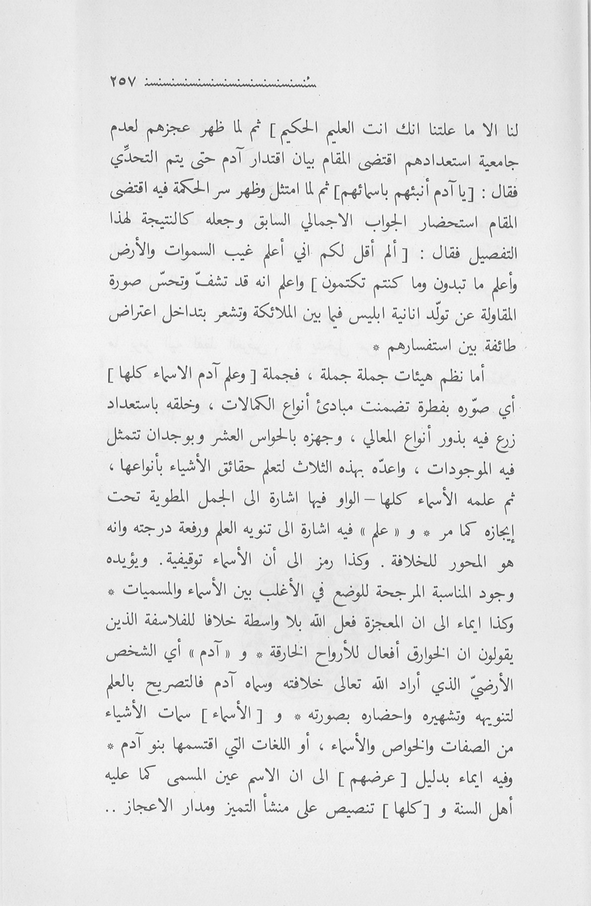 ٢٥٧
لنا الا ما علتنا انك انت العليم الحكيم ] ثم لما ظهر عجزهم لعدم
جامعية استعدادهم اقتضى المقام بيان اقتدار آدم حتى يتم التحدِّي
فقال : [يا آدم أنبئهم باسمائهم] ثم لما امتثل وظهر سر الحكمة فيه اقتضى
المقام استحضار الجواب الاجمالي السابق وجعله كالنتيجة لهذا
التفصيل فقال : [ ألم أقل لكم اني أعلم غيب السموات والأرض
وأعلم ما تبدون وما كنتم تكتمون ] واعلم انه قد تشفّ وتحسّ صورة
المقاولة عن تولّد انانية ابليس فيما بين الملائكة وتشعر بتداخل اعتراض
طائفة بين استفسارهم *
أما نظم هيئات جملة جملة ، فجملة [ وعلم آدم الاسماء كلها ]
أي صوّره بفطرة تضمنت مبادئ أنواع الكمالات ، وخلقه باستعداد
زرع فيه بذور أنواع المعالي ، وجهزه بالحواس العشر وبوجدان تتمثل
فيه الموجودات ، واعدّه بهذه الثلاث لتعلم حقائق الأشياء بأنواعها ،
ثم علمه الأسماء كلها – الواو فيها اشارة الى الجمل المطوية تحت
إيجازه كما مر * و « علم » فيه اشارة الى تنويه العلم ورفعة درجته وانه
هو المحور للخلافة . وكذا رمز الى أن الأسماء توقيفية . ويؤيده
وجود المناسبة المرجحة للوضع في الأغلب بين الأسماء والمسميات *
وكذا ايماء الى ان المعجزة فعل الله بلا واسطة خلافا للفلاسفة الذين
يقولون ان الخوارق أفعال للأرواح الخارقة * و « آدم » أي الشخص
الأرضيّ الذي أراد الله تعالى خلافته وسماه آدم فالتصريح بالعلم
لتنويهه وتشهيره واحضاره بصورته * و [ الأسماء ] سمات الأشياء
من الصفات والخواص والأسماء ، أو اللغات التي اقتسمها بنو آدم *
وفيه ايماء بدليل [ عرضهم ] الى ان الاسم عين المسمى كما عليه
أهل السنة و [ كلها ] تنصيص على منشأ التميز ومدار الاعجاز ..